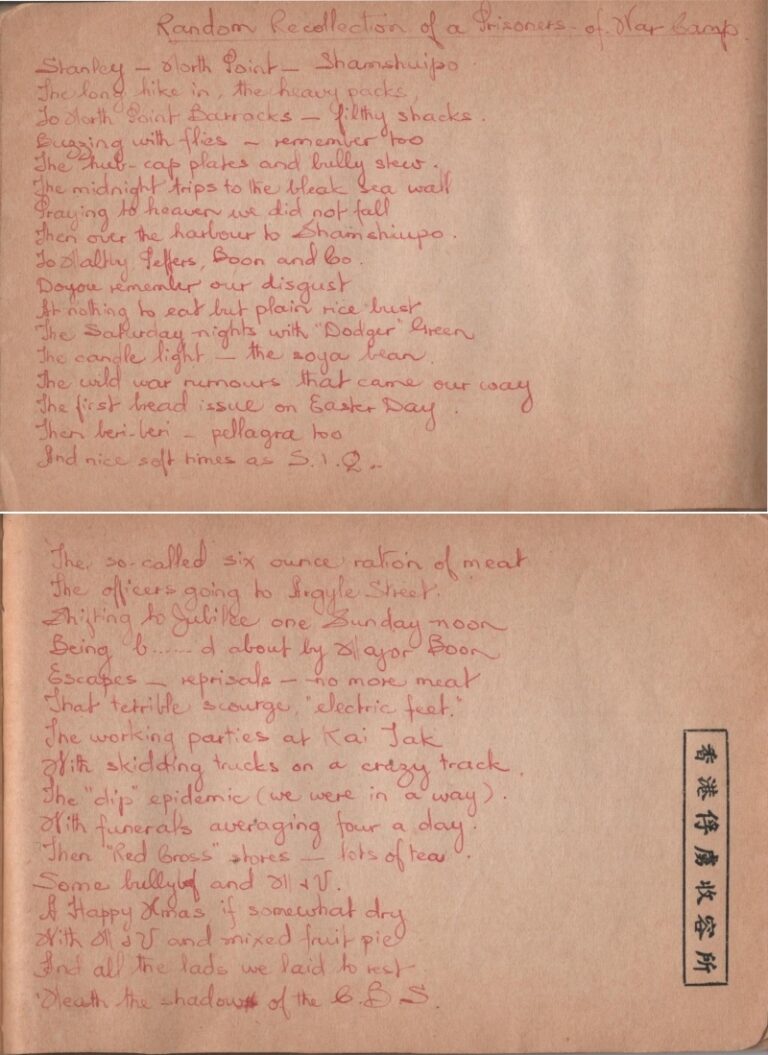 Random Recollection of a Prisoners-of-War Camp.
Stanley – North Point – Shamshuipo
The long hike in, the heavy packs,
To North Point Barracks – filthy shacks.
Buzzing with flies – remember too
The hub-cap plates and bully stew.
The midnight trips to the bleak sea wall
Praying to heaven we did not fall
Then over the harbour to Shamshiupo.
To Maltby, Peffers, Boon and Co.
Do you remember our disgust
At nothing to eat but plain rice bust
The Saturday nights with "Dodger" Green
The candle light – the soya bean.
The wild war rumours that came our way
The first bread issue on Easter Day.
Then beri-beri – pellagra too
And nice soft times as S.I.Q..
The so-called six ounce ration of meat
The officers going to Argyle Street.
Shifting to Jubilee one Sunday noon
Being b......d about by Major Boon
Escapes – reprisals – no more meat
That terrible scourge, "electric feet."
The working parties at Kai Tak
With skidding trucks on a crazy track.
The "dip" epidemic (we were in a way).
With funerals averaging four a day.
Then "Red Cross" stores – lots of tea.
Some bully and M & V.
A Happy Xmas if somewhat dry
With M & V and mixed fruit pie
And all the lads we laid to rest
'Neath the shadow of the C.B.S.
香港俘虜收容所